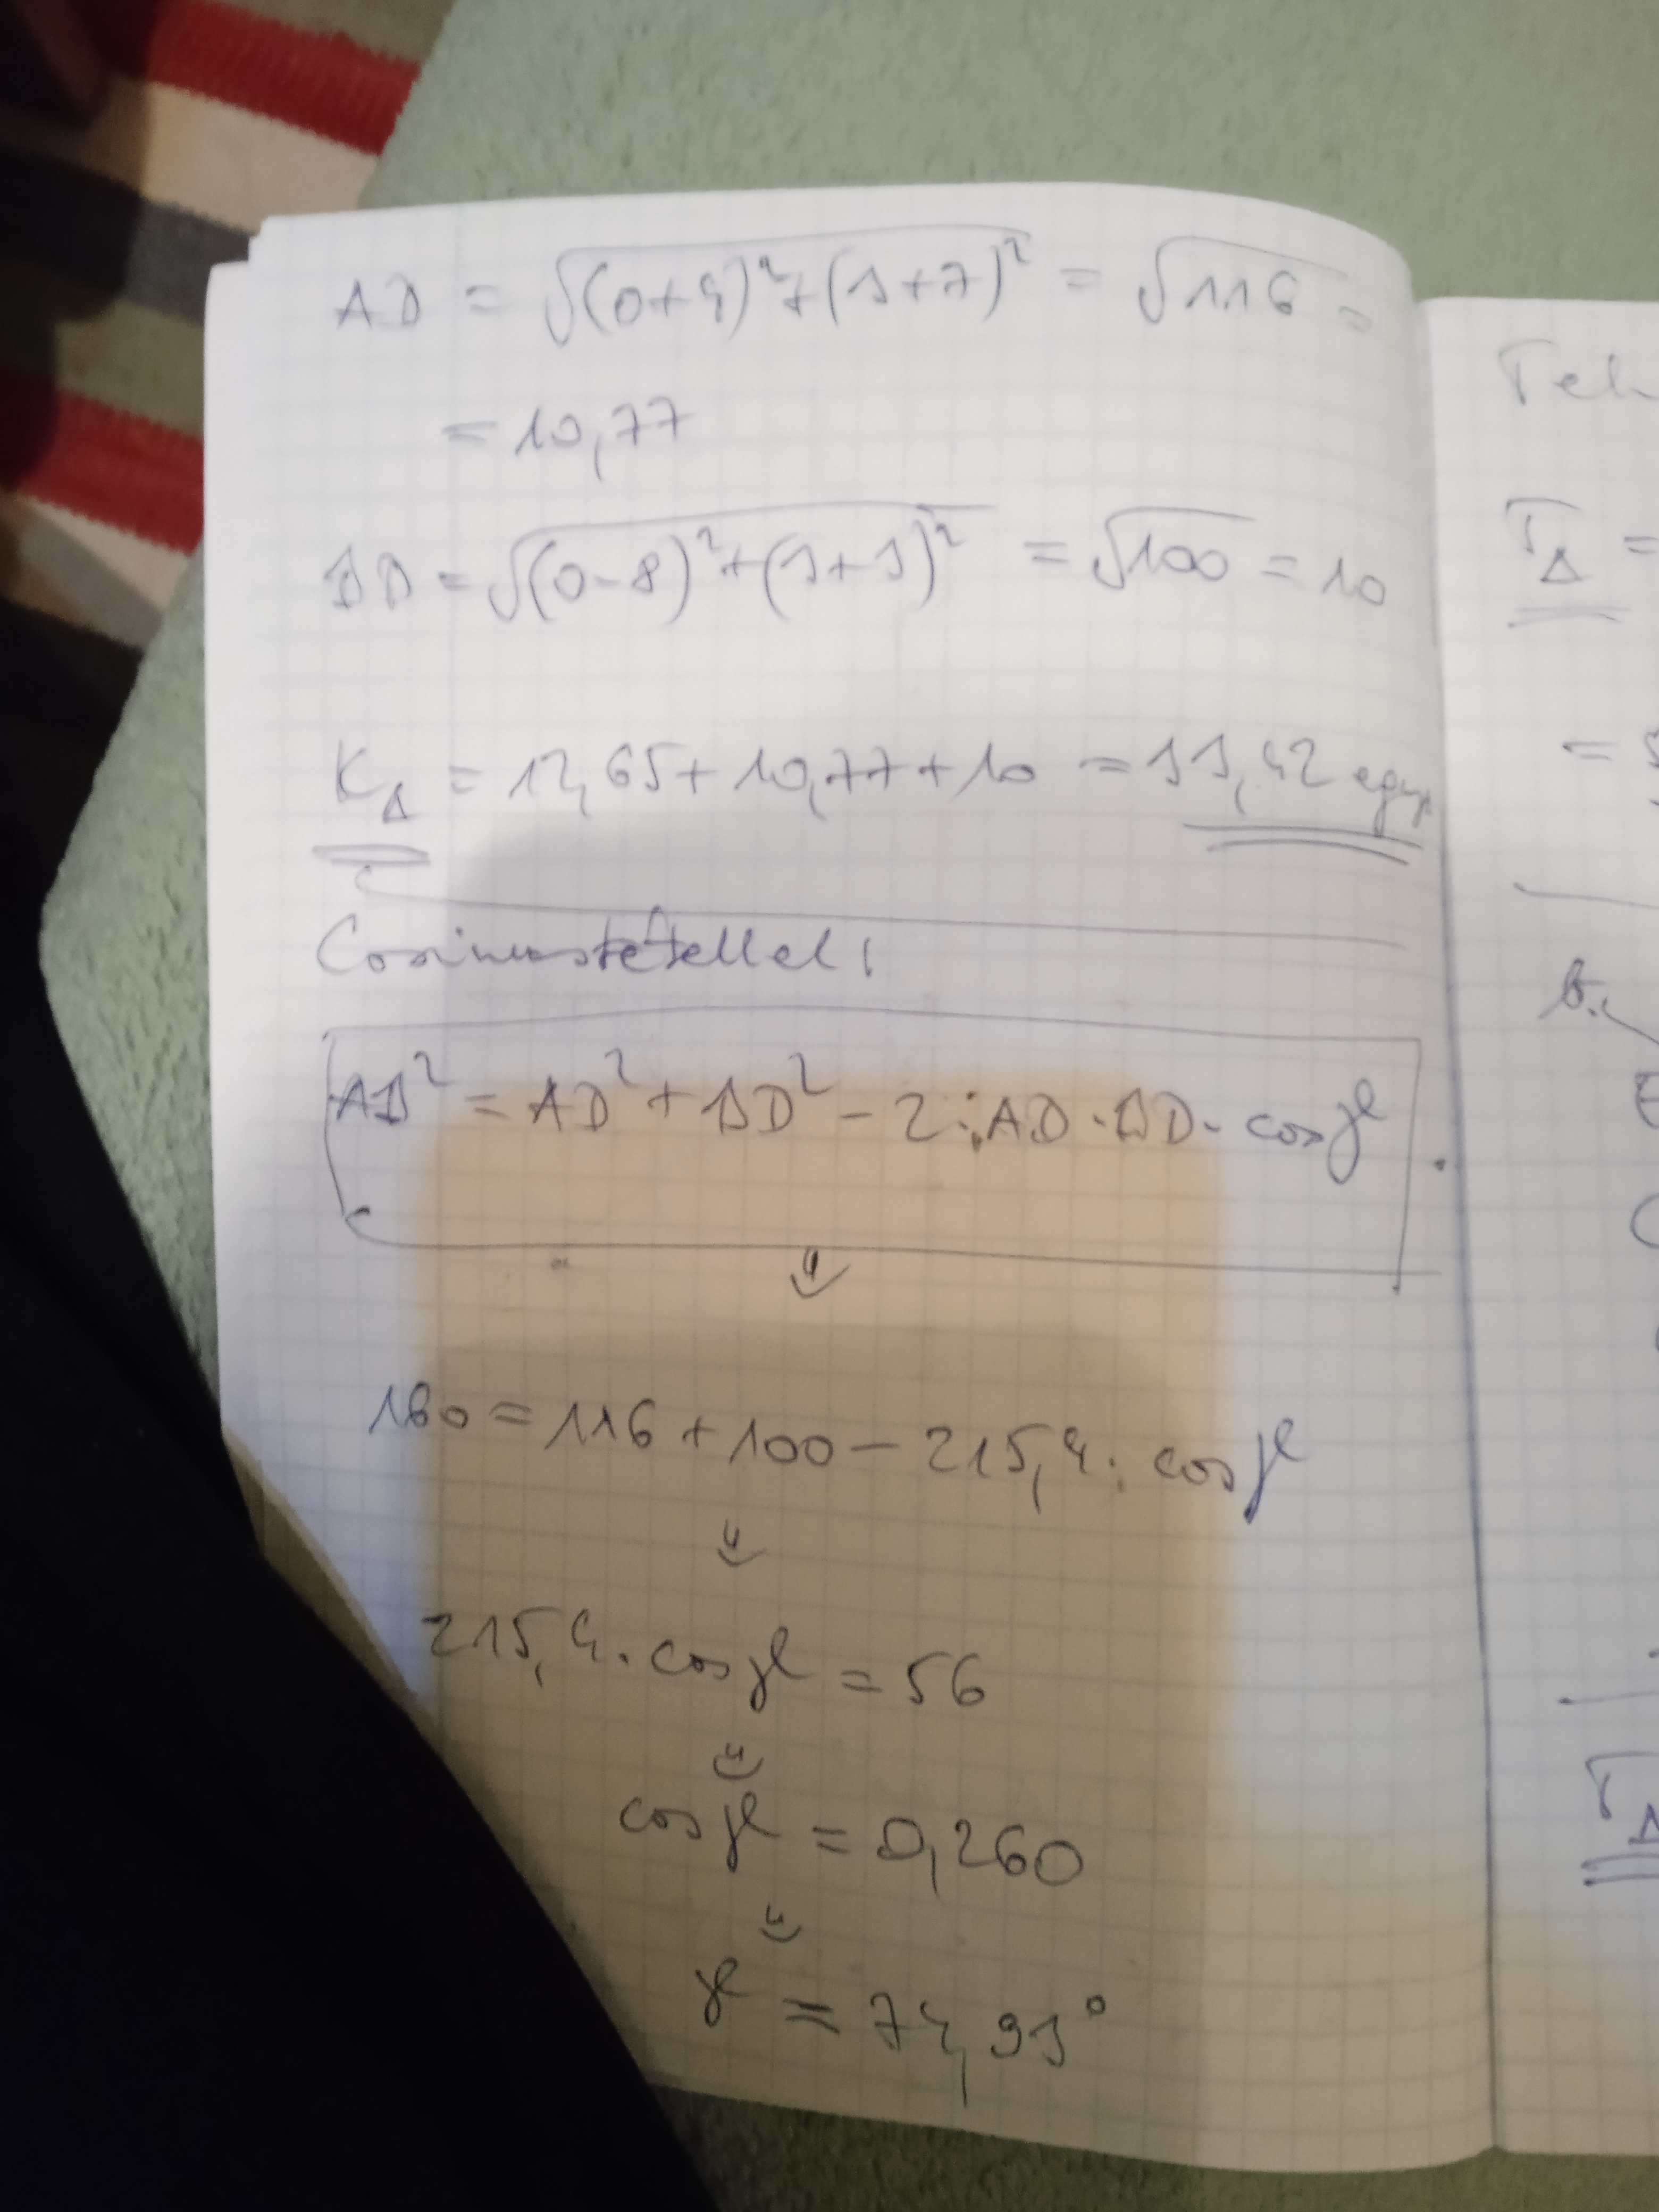 AD = √(0+4)² + (3+7)² = √116 =
= 10,77
BD = √(0-8)² + (3+3)² = √100 = 10
K△ = 12,65 + 10,77 + 10 = 33,42 egys
Cosinustétellel:
AB² = AD² + BD² - 2·AD·BD·cosγ
⇓
160 = 116 + 100 - 215,4·cosγ
⇓
215,4·cosγ = 56
⇓
cosγ = 0,260
⇓
γ = 74,93°
T△ =
=
b.
T△